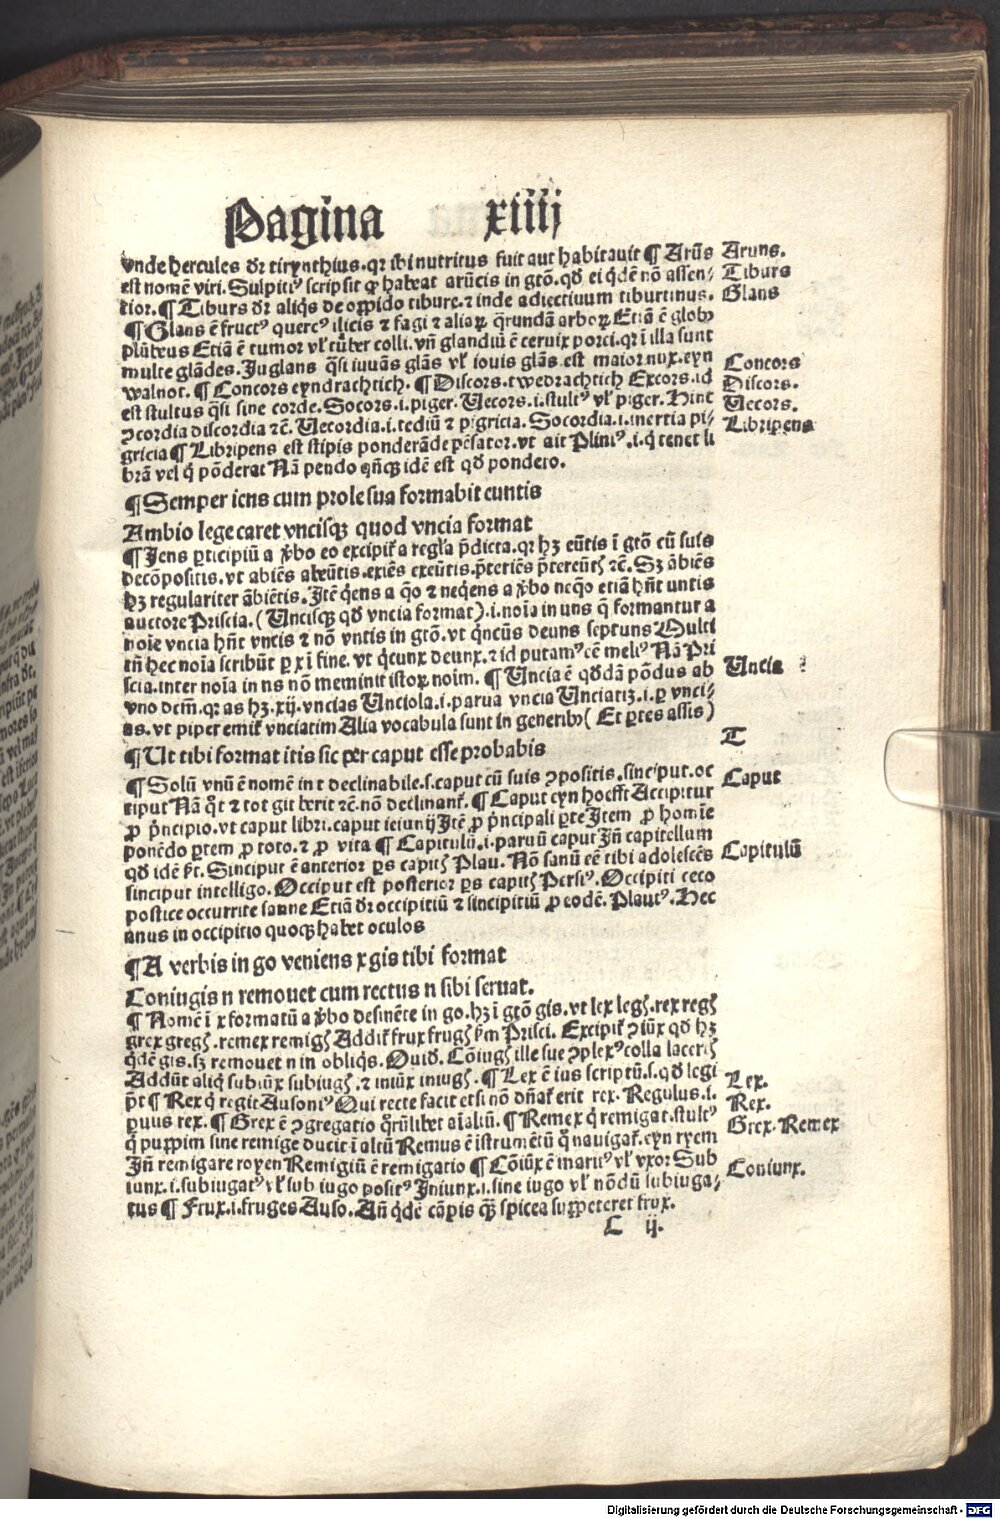 Pagina xiiij
vnde hercules dr̄ tirynthius.qr ibi nutritus fuit aut habitauit ¶ Arūs Aruns.
est nomē viri. Sulpitiꝰ scripsit ꝙ habeat arūtis in gtō.qd̄ ei qdē nō assen- Tiburs
tior. ¶ Tiburs dr̄ aliqs de oppido tibure. ⁊ inde adiectiuum tiburtinus. Glans
¶ Glans ē fructꝰ quercꝰ ilicis ⁊ fagi ⁊ aliaꝝ qrundā arboꝝ. Etiā ē globꝰ
plūbeus Etiā ē tumor vl̄ tūber colli. vn̄ glandiū ē ceruix porci.qr i illa sunt
multe glādes. Juglans qsi iuuās glās vl̄ iouis glās.est maior nux.eyn
walnot. ¶ Concors eyndrachtich. ¶ Discors.twedrachtich Excors.id Concors
est stultus qsi sine corde. Socors.i.piger. Uecors.i.stultꝰ vl̄ piger. Hinc Discors.
ꝯcordia discordia ⁊c̄. Uecordia.i.tediū ⁊ pigricia. Socordia.i.inertia pi- Uecors.
gricia ¶ Libripens est stipis ponderāde pēsator.vt ait Pliniꝰ.i.q tenet li Libripens
brā vel q pōderat Nā pendo qn̄qꝫ idē est qd̄ pondero.
¶ Semper iens cum prole sua formabit euntis
Ambio lege caret vncisqꝫ quod vncia format
¶ Jens ꝑticipiū a v̄bo eo excipit̄ a regl̄a p̄dicta.qr hꝫ eūtis ī gtō cū suis
decōpositis.vt abiēs abeūtis.exiēs exeūtis.p̄teriēs p̄tereūtꝭ ⁊c̄. Sꝫ ābiēs
hꝫ regulariter ābiētis. Jtē qēns a qo ⁊ neqēns a v̄bo neqo etiā hn̄t untis
auctore Priscia. (Uncisqꝫ qd̄ vncia format).i.noīa in uns q̄ formantur a
noīe vncia hn̄t vncis ⁊ nō vntis in gtō.vt qncūs deuns septuns Multi
tn̄ hec noīa scribūt ꝑ x ī fine.vt qcunx deunx.⁊ id putamꝰ eē meliꝰ Nā Pri
scia.inter noīa in ns nō meminit istoꝝ noim. ¶ Uncia ē qdā pōdus ab Uncia
vno dcm̄.qr as hꝫ.xij.vncias Unciola.i.parua vncia Unciatiꝫ.i.ꝑ vnci-
as.vt piper emit̄ vnciatim Alia vocabula sunt in generibꝰ (Et ꝑtes assis)
¶ Ut tibi format itis sic per caput esse probabis T
¶ Solū vnū ē nomē in t declinabile.s.caput cū suis ꝯpositis.sinciput.oc Caput
ciput Nā qt ⁊ tot git herit ⁊c̄.nō declinant̄. ¶ Caput eyn hoefft Accipitur
ꝓ p̄ncipio.vt caput libri.caput ieiunij Jtē ꝓ p̄ncipali ꝑte Jtem ꝓ homīe
ponēdo ꝑtem ꝓ toto. ⁊ ꝓ vita ¶ Capitulū.i.paruū caput Jn̄ capitellum Capitulū
qd̄ idē ē. Sinciput ē anterior ꝑs capitꝭ Plau. Nō sanū eē tibi adolescēs
sinciput intelligo. Occiput est posterior ꝑs capitꝭ Persiꝰ. Occipiti ceco
postice occurrite sanne Etiā dr̄ occipitiū ⁊ sincipitiū ꝓ eodē. Plautꝰ. Hec
anus in occipitio quoqꝫ habet oculos
¶ A verbis in go veniens x gis tibi format
Coniugis n remouet cum rectus n sibi seruat.
¶ Nomē ī x formatū a v̄bo desinēte in go.hꝫ ī gtō gis.vt lex legꝭ.rex regꝭ
grex gregꝭ.remex remigꝭ Addit̄ frux frugꝭ ẜm Prisci. Excipit̄ ꝯiūx qd̄ hꝫ
qdē gis.sꝫ remouet n in obliqs. Ouid. Cōiugꝭ ille sue ꝯplexꝰ colla lacertꝭ
Addūt aliq subiūx subiugꝭ.⁊ iniūx iniugꝭ. ¶ Lex ē ius scriptū.s.qd̄ legi Lex.
p̄t ¶ Rex q regit Ausoniꝰ Qui recte facit etsi nō dn̄at̄ erit rex. Regulus.i. Rex.
ꝑuus rex. ¶ Grex ē ꝯgregatio qrūlibet aīaliū. ¶ Remex q remigat.stultꝰ Grex. Remex
q puppim sine remige ducit ī altū Remus ē īstrumētū q nauigat̄.eyn ryem
Jn̄ remigare royen Remigiū ē remigatio ¶ Cōiūx ē maritꝰ vl̄ vxor Sub Coniunx.
iunx.i.subiugatꝰ vl̄ sub iugo positꝰ Jniunx.i.sine iugo vl̄ nōdū subiuga-
tus ¶ Frux.i.fruges Auso. An̄ qdē cāpis qꝫ spicea suppeteret frux.
C ij.
Digitalisierung gefördert durch die Deutsche Forschungsgemeinschaft - DFG